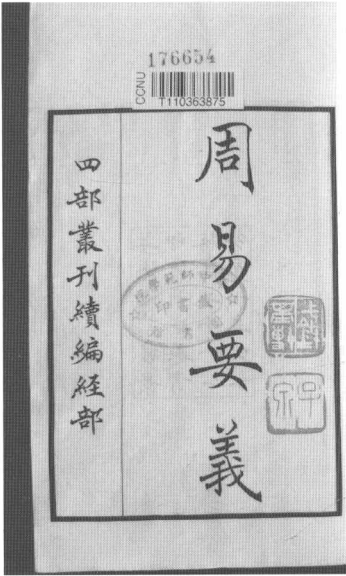 176654
CCNU
T110363875
周易要義
四部叢刊續編経部